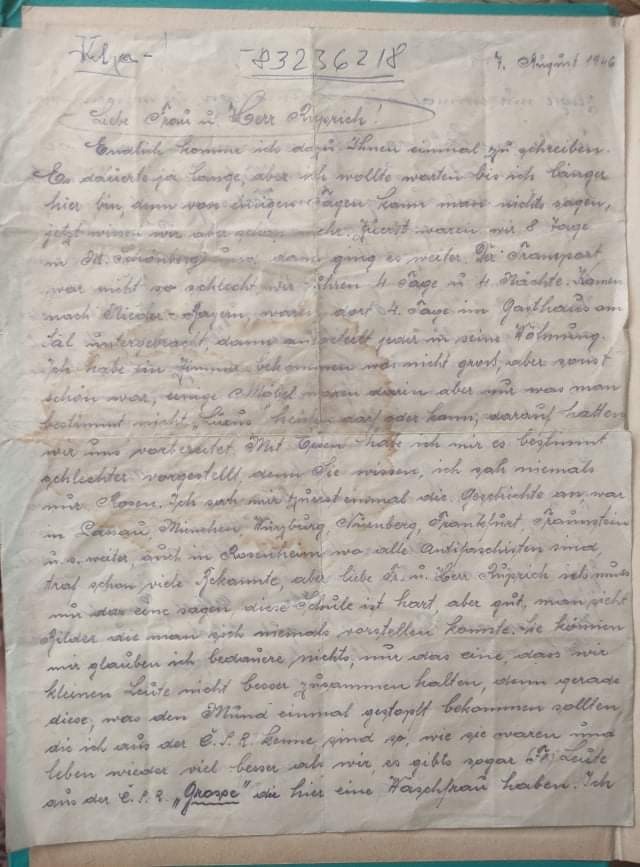 -83236218
7. August 1946
Liebe Frau u Herr Ruprich!
Endlich komme ich dazu Ihnen einmal zu schreiben.
Es dauerte ja lange, aber ich wollte warten bis ich länger
hier bin, denn von einigen Tagen kann man nichts sagen,
jetzt wissen wir aber schon mehr. Zuerst waren wir 8 Tage
in M. Schönberg u. dann ging es weiter. Der Transport
war nicht so schlecht, wir fuhren 4 Tage u 4 Nächte. Kamen
nach Nieder-Bayern, waren dort 4 Tage im Gasthaus am
untergebracht, dann jeder in seine Wohnung.
Ich habe ein Zimmer bekommen was nicht gross, aber sonst
schön war, einige Möbel waren darin aber nur was man
bestimmt nicht „Luxus" heissen darf oder kann, darauf hatten
wir uns vorbereitet. Mit Essen habe ich mir es bestimmt
schlechter vorgestellt, denn Sie wissen, ich sah niemals
nur Rosen. Ich sah mir zuerst einmal die Geschichte an, war
in Landau, München Würzburg, Nürenberg, Frankfurt, Traunstein
u. s. weiter, auch in Rosenheim wo alle Antifaschisten sind,
traf schon viele Bekannte, aber liebe Fr. u. Herr Ruprich ich muss
nur das eine sagen, diese Schule ist hart, aber gut, man sieht
Bilder die man sich niemals vorstellen konnte. Sie können
mir glauben ich bedauere nichts nur das eine, dass wir
kleinen Leute nicht besser zusammen halten, denn gerade
diese, was den Mund einmal gestopft bekommen sollten
die ich aus der Č.S.R. kenne, sind so, wie sie waren und
leben wieder viel besser als wir, es gibts sogar Leute
aus der Č.S.R. „Grosse" die hier eine Waschfrau haben. Ich